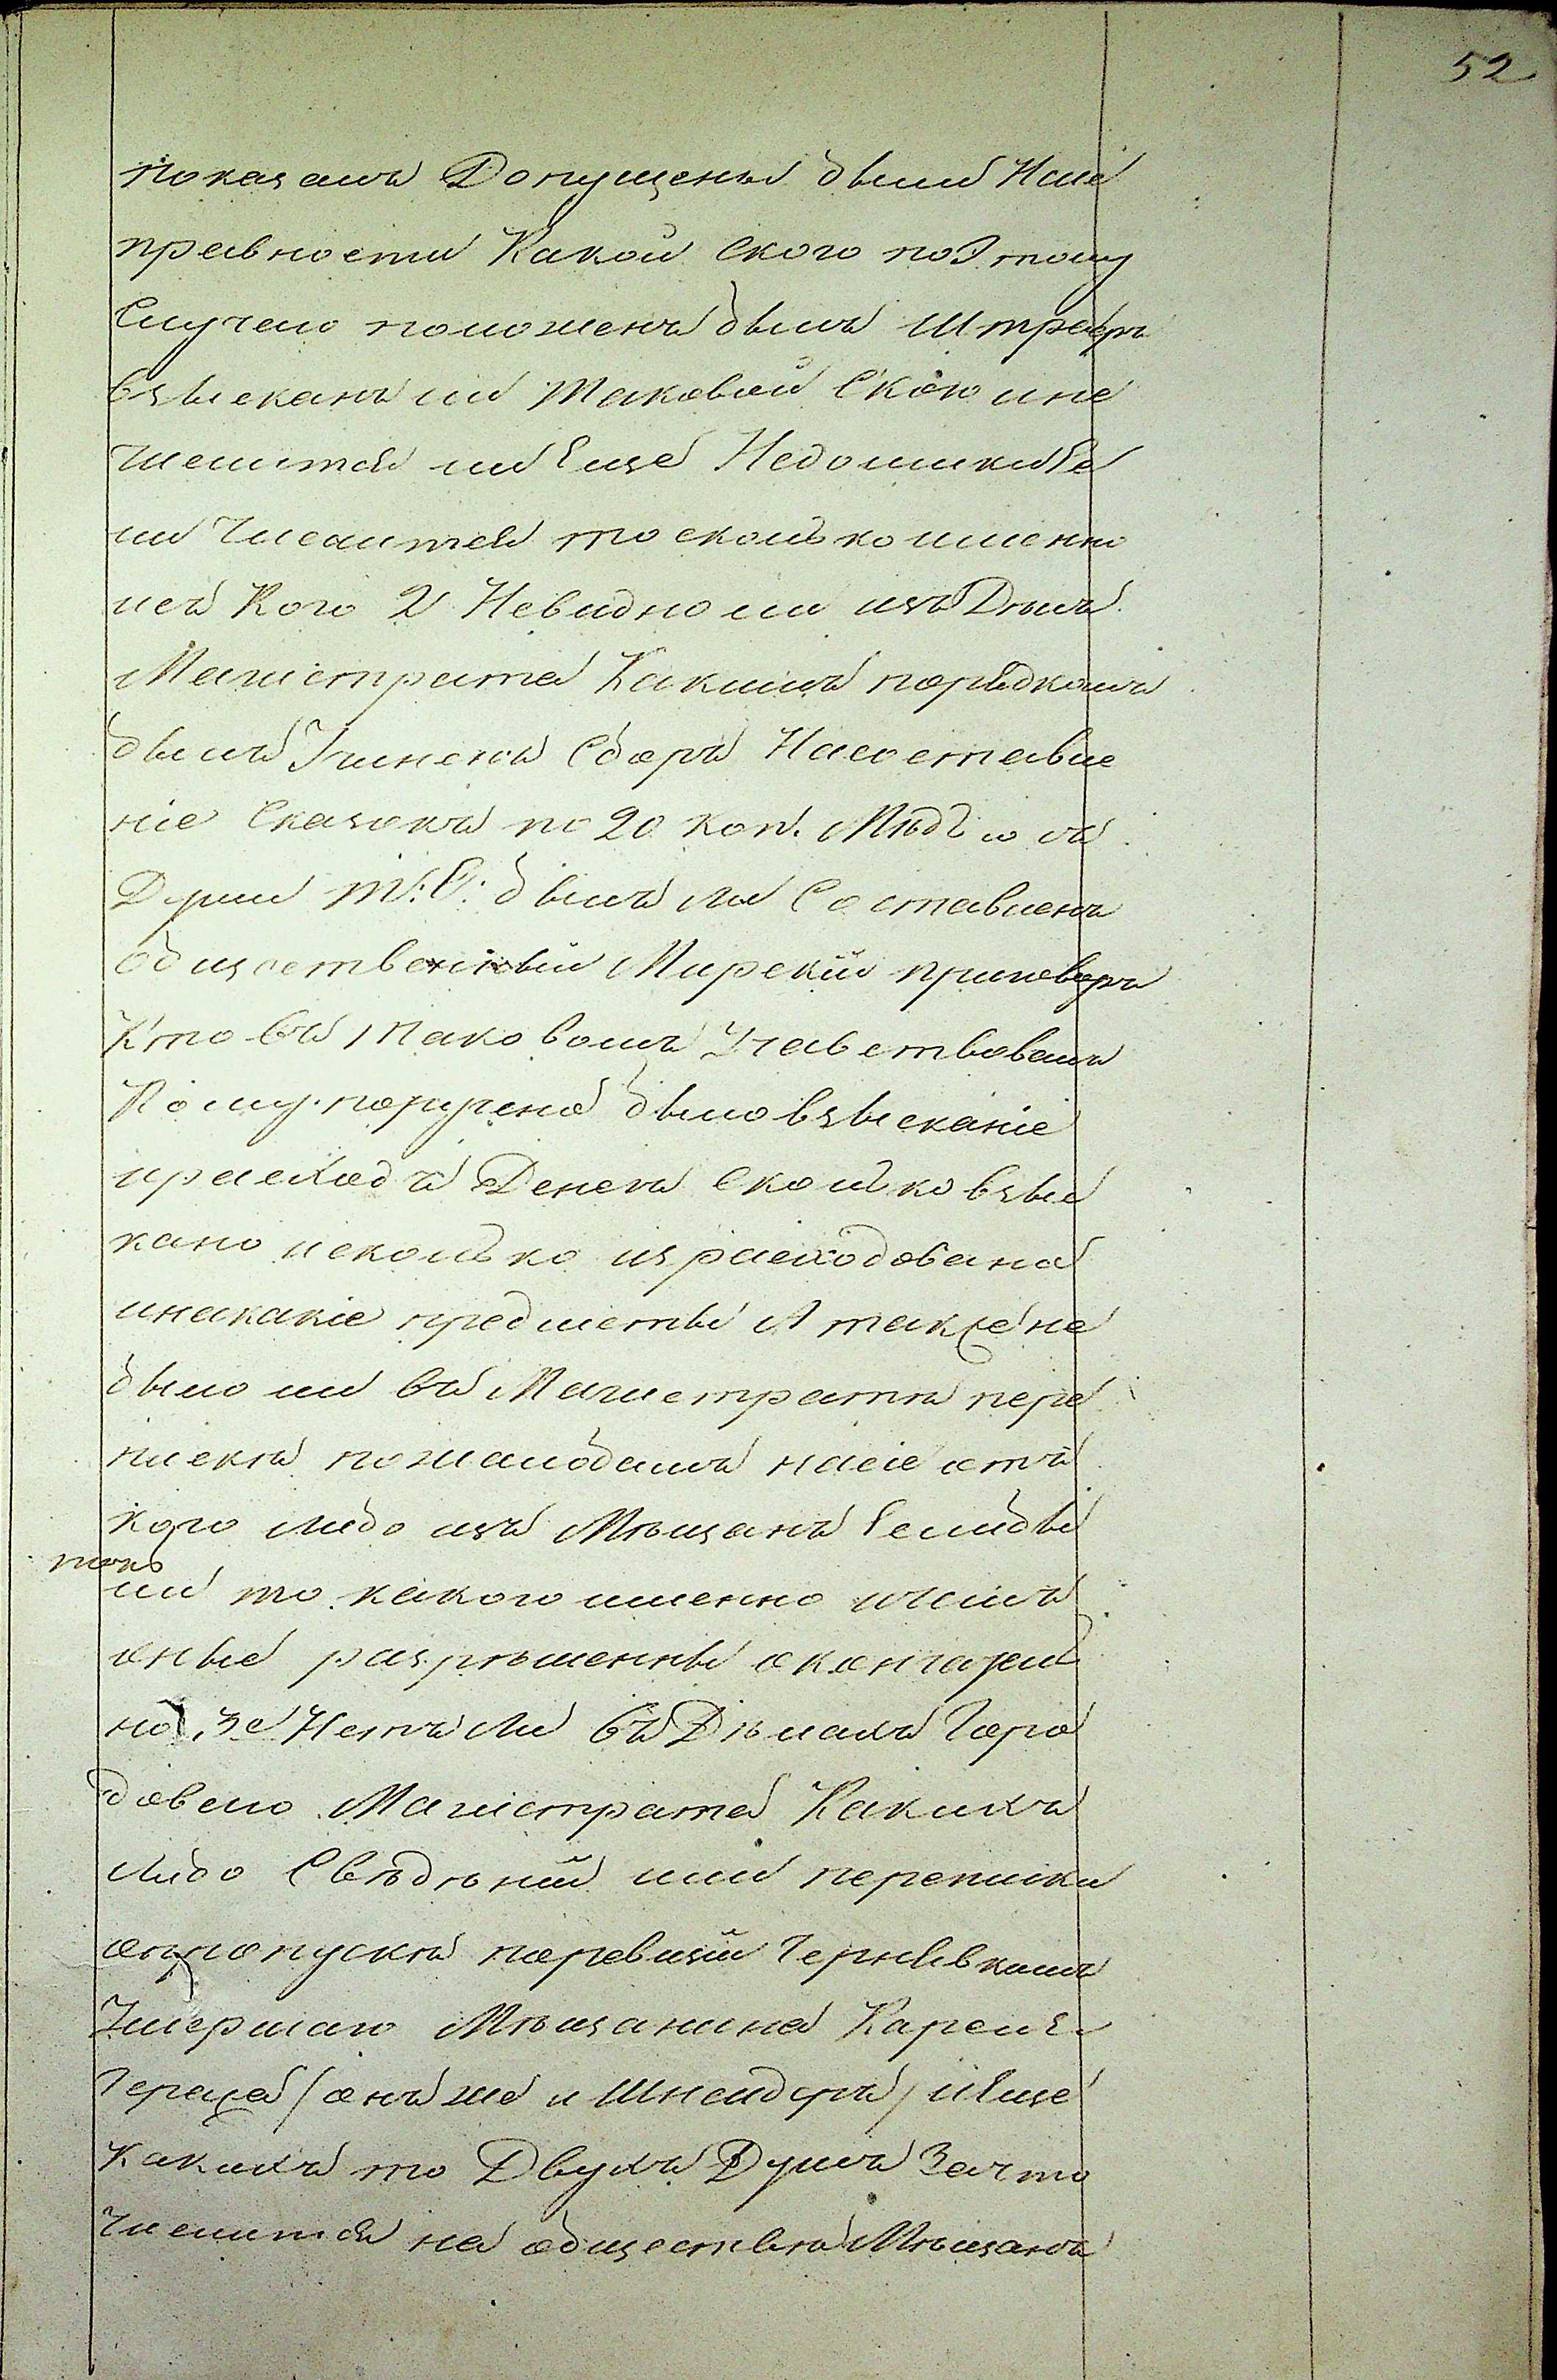 52
показамъ Допущены были Неис
правности Какой ского поЭтому
Случею положенъ былъ Штрафъ
взысканъ ли Таковой Ского ине
числится ли Еще Недоимки Ес
ли Числится то сколько именно
иеъ Кого 2 Невидно ли изъ Дѣлъ
Магистрата Какимъ порядкомъ
былъ Учиненъ Сборъ Насоставле
ніе Сказокъ по 20 коп. Мѣдью съ
Души т: е: былъ ли Составленъ
общественный Мирскій приговоръ
Кто въ Таковомъ Учавствовалъ
Кому поручено было взысканіе
ирасходъ Денегъ Сколько взыс
кано исколько израсходовано
инакакіе предметы А также не
было ли въ Магистратѣ пере
писки пожалобамъ насіе отъ
кого либо изъ Мѣщанъ Еслибы
ли то какого именно ичѣмъ
оные разрѣшенны окончатель
но, 3е Нетъ Ли въ Дѣлахъ Горо
доваго Магистрата Какихъ
либо Свѣдѣній или переписки
опропускѣ поревизіи Чернявкамъ
Умершаго Мѣщанина
Гераща /онъ же и Шнейдеръ/ иеще
Какихъ то Двухъ Душъ Зачто
Числится на обществѣ Мѣщанъ